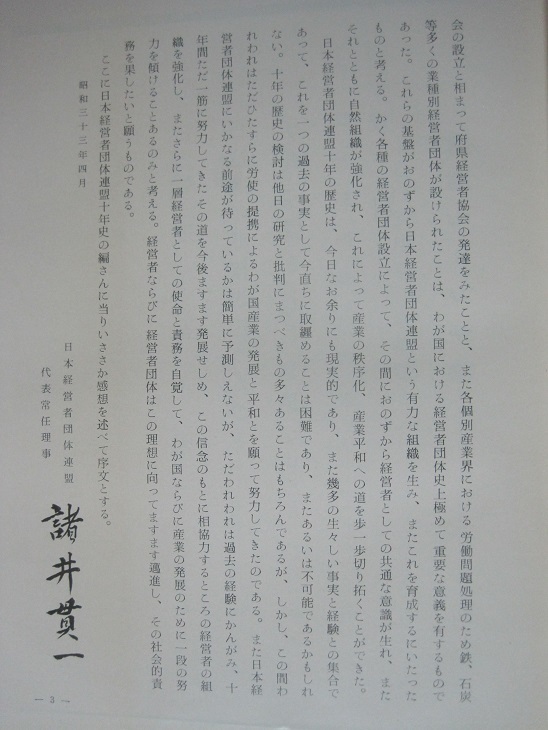 会の設立と相まつて府県経営者協会の発達をみたことと、また各個別産業界における労働問題処理のため鉄、石炭
等多くの業種別経営者団体が設けられたことは、わが国における経営者団体史上極めて重要な意義を有するもので
あつた。これらの基盤がおのずから日本経営者団体連盟という有力な組織を生み、またこれを育成するにいたつた
ものと考える。かく各種の経営者団体設立によつて、その間におのずから経営者としての共通な意識が生れ、また
それとともに自然組織が強化され、これによつて産業の秩序化、産業平和への道を歩一歩切り拓くことができた。
日本経営者団体連盟十年の歴史は、今日なお余りにも現実的であり、また幾多の生々しい事実と経験との集合で
あつて、これを一つの過去の事実として今直ちに取纒めることは困難であり、またあるいは不可能であるかもしれ
ない。十年の歴史の検討は他日の研究と批判にまつべきもの多々あることはもちろんであるが、しかし、この間わ
れわれはただひたすらに労使の提携によるわが国産業の発展と平和とを願つて努力してきたのである。また日本経
営者団体連盟にいかなる前途が待つているかは簡単に予測しえないが、ただわれわれは過去の経験にかんがみ、十
年間ただ一筋に努力してきたその道を今後ますます発展せしめ、この信念のもとに相協力するところの経営者の組
織を強化し、またさらに一層経営者としての使命と責務を自覚して、わが国ならびに産業の発展のために一段の努
力を傾けることあるのみと考える。経営者ならびに経営者団体はこの理想に向つてますます邁進し、その社会的責
務を果したいと願うものである。
ここに日本経営者団体連盟十年史の編さんに当りいささか感想を述べて序文とする。
昭和三十三年四月
日本経営者団体連盟
代表常任理事
諸井貫一
— 3 —